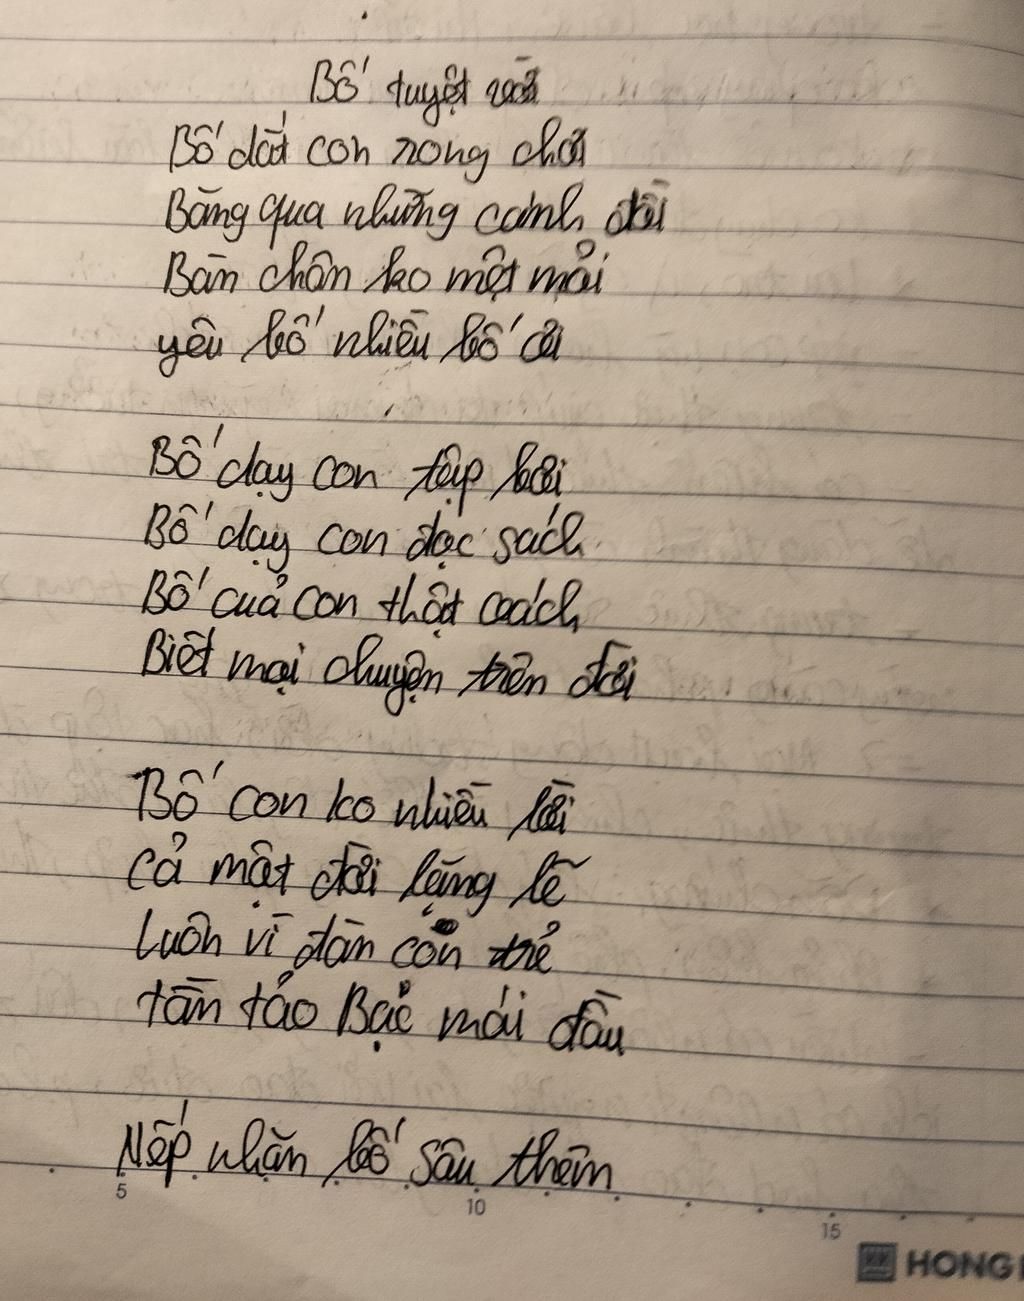 Bố tuyệt vời
Bố dắt con rong chơi
Băng qua những cánh đồi
Bàn chân ko mệt mỏi
yêu bố nhiều bố ơi
Bố dạy con tập bơi
Bố dạy con đọc sách
Bố cuả con thật coách
Biết mọi chuyện trên đời
Bố con ko nhiều lời
Cả một đời lặng lẽ
Luôn vì đàn con trẻ
tần tảo Bạc mái đầu
Nếp nhăn bố sâu thêm
5
10
15
HONG